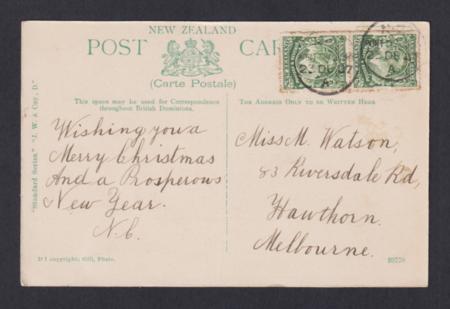 NEW ZEALAND
POST CAR
(Carte Postale)
This space may be used for Correspondence
throughout British Dominions.
The Address Only to be Written Here
"Standard Series." "J. W. & Coy., D."
Wishing you a
Merry Christmas
And a Prosperous
New Year.
N.C.
Miss M. Watson,
83 Riversdale Rd,
Hawthorn.
Melbourne.
copyright; Gill, Photo.
23 DE 07
A